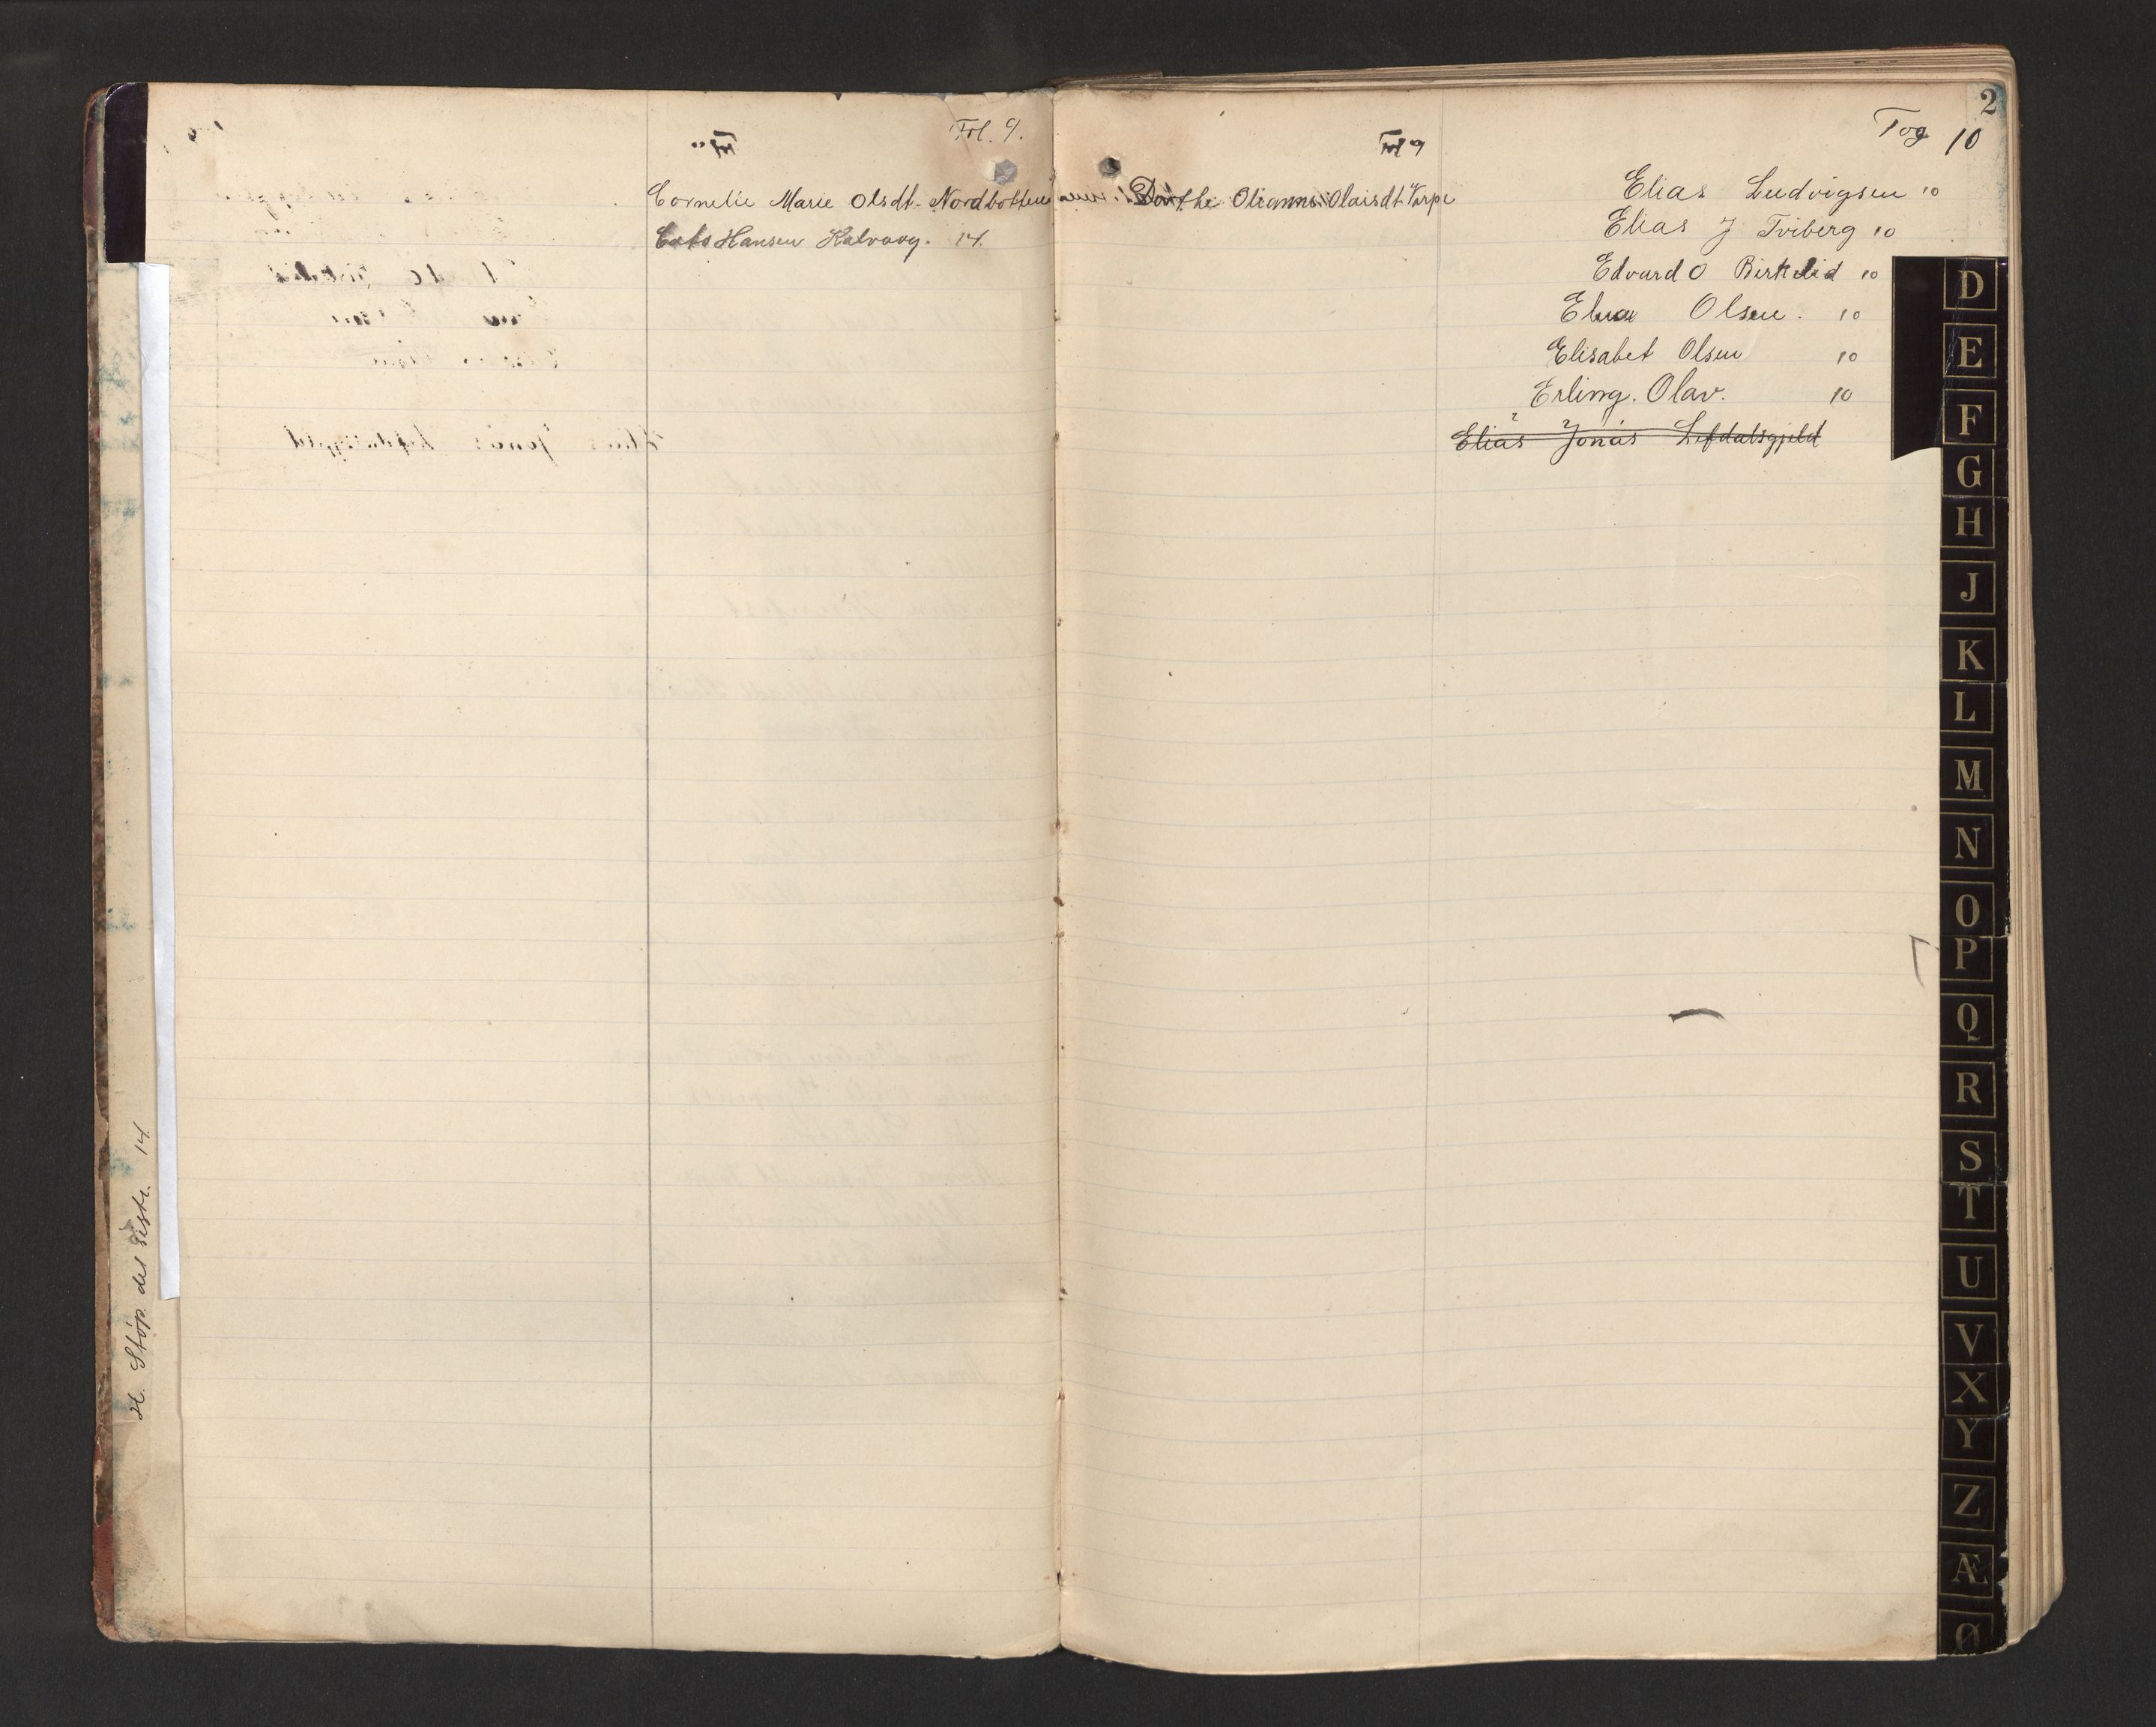 Fol. 9.
Cornelie Marie Olsdt. Nordbotten
Hansen Kalvaag. 14.
H. Støp. del 14
Fol 9
Dorthe Olianna Olaisdt Varpe
2
Tog 10
Elias Ludvigsen 10
Elias J Tviberg 10
Edvard O Birkelid 10
Olsen. 10
Elisabet Olsen 10
Erling. Olav. 10
Elias Jonas Lefdalsgjeld
D
E
F
G
H
J
K
L
M
N
O
P
Q
R
S
T
U
V
X
Y
Z
Æ
Ø